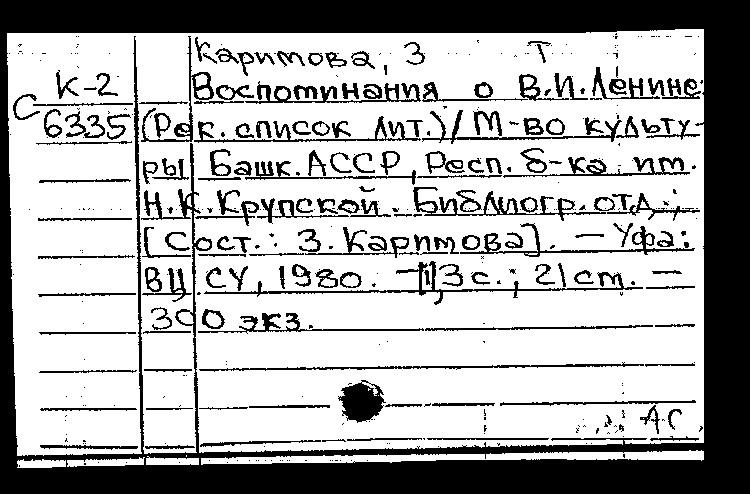 Каримова, З Т
К-2 Воспоминания о В.И.Ленине:
С 6335 (Рек. список лит.) / М-во культу-
ры Башк. АССР, Респ. б-ка им.
Н.К.Крупской. Библиогр. отд.;
[Сост.: З. Каримова]. — Уфа:
ВЦ СУ, 1980. — 13 с.; 21 cm. —
300 экз.
АС